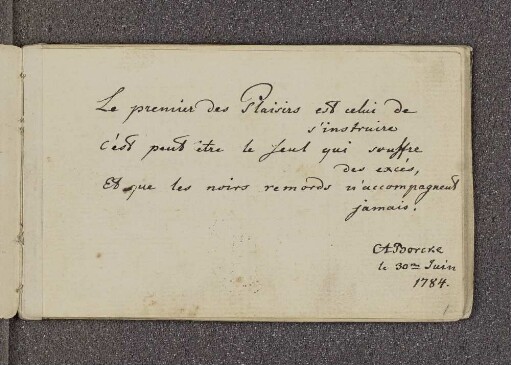 Le premier des Plaisirs est celui de
s'instruire
c'est peut etre le seul qui souffre
des excés,
Et que les noirs remords n'accompagnent
jamais.
CABorcke
le 30me Juin
1784.